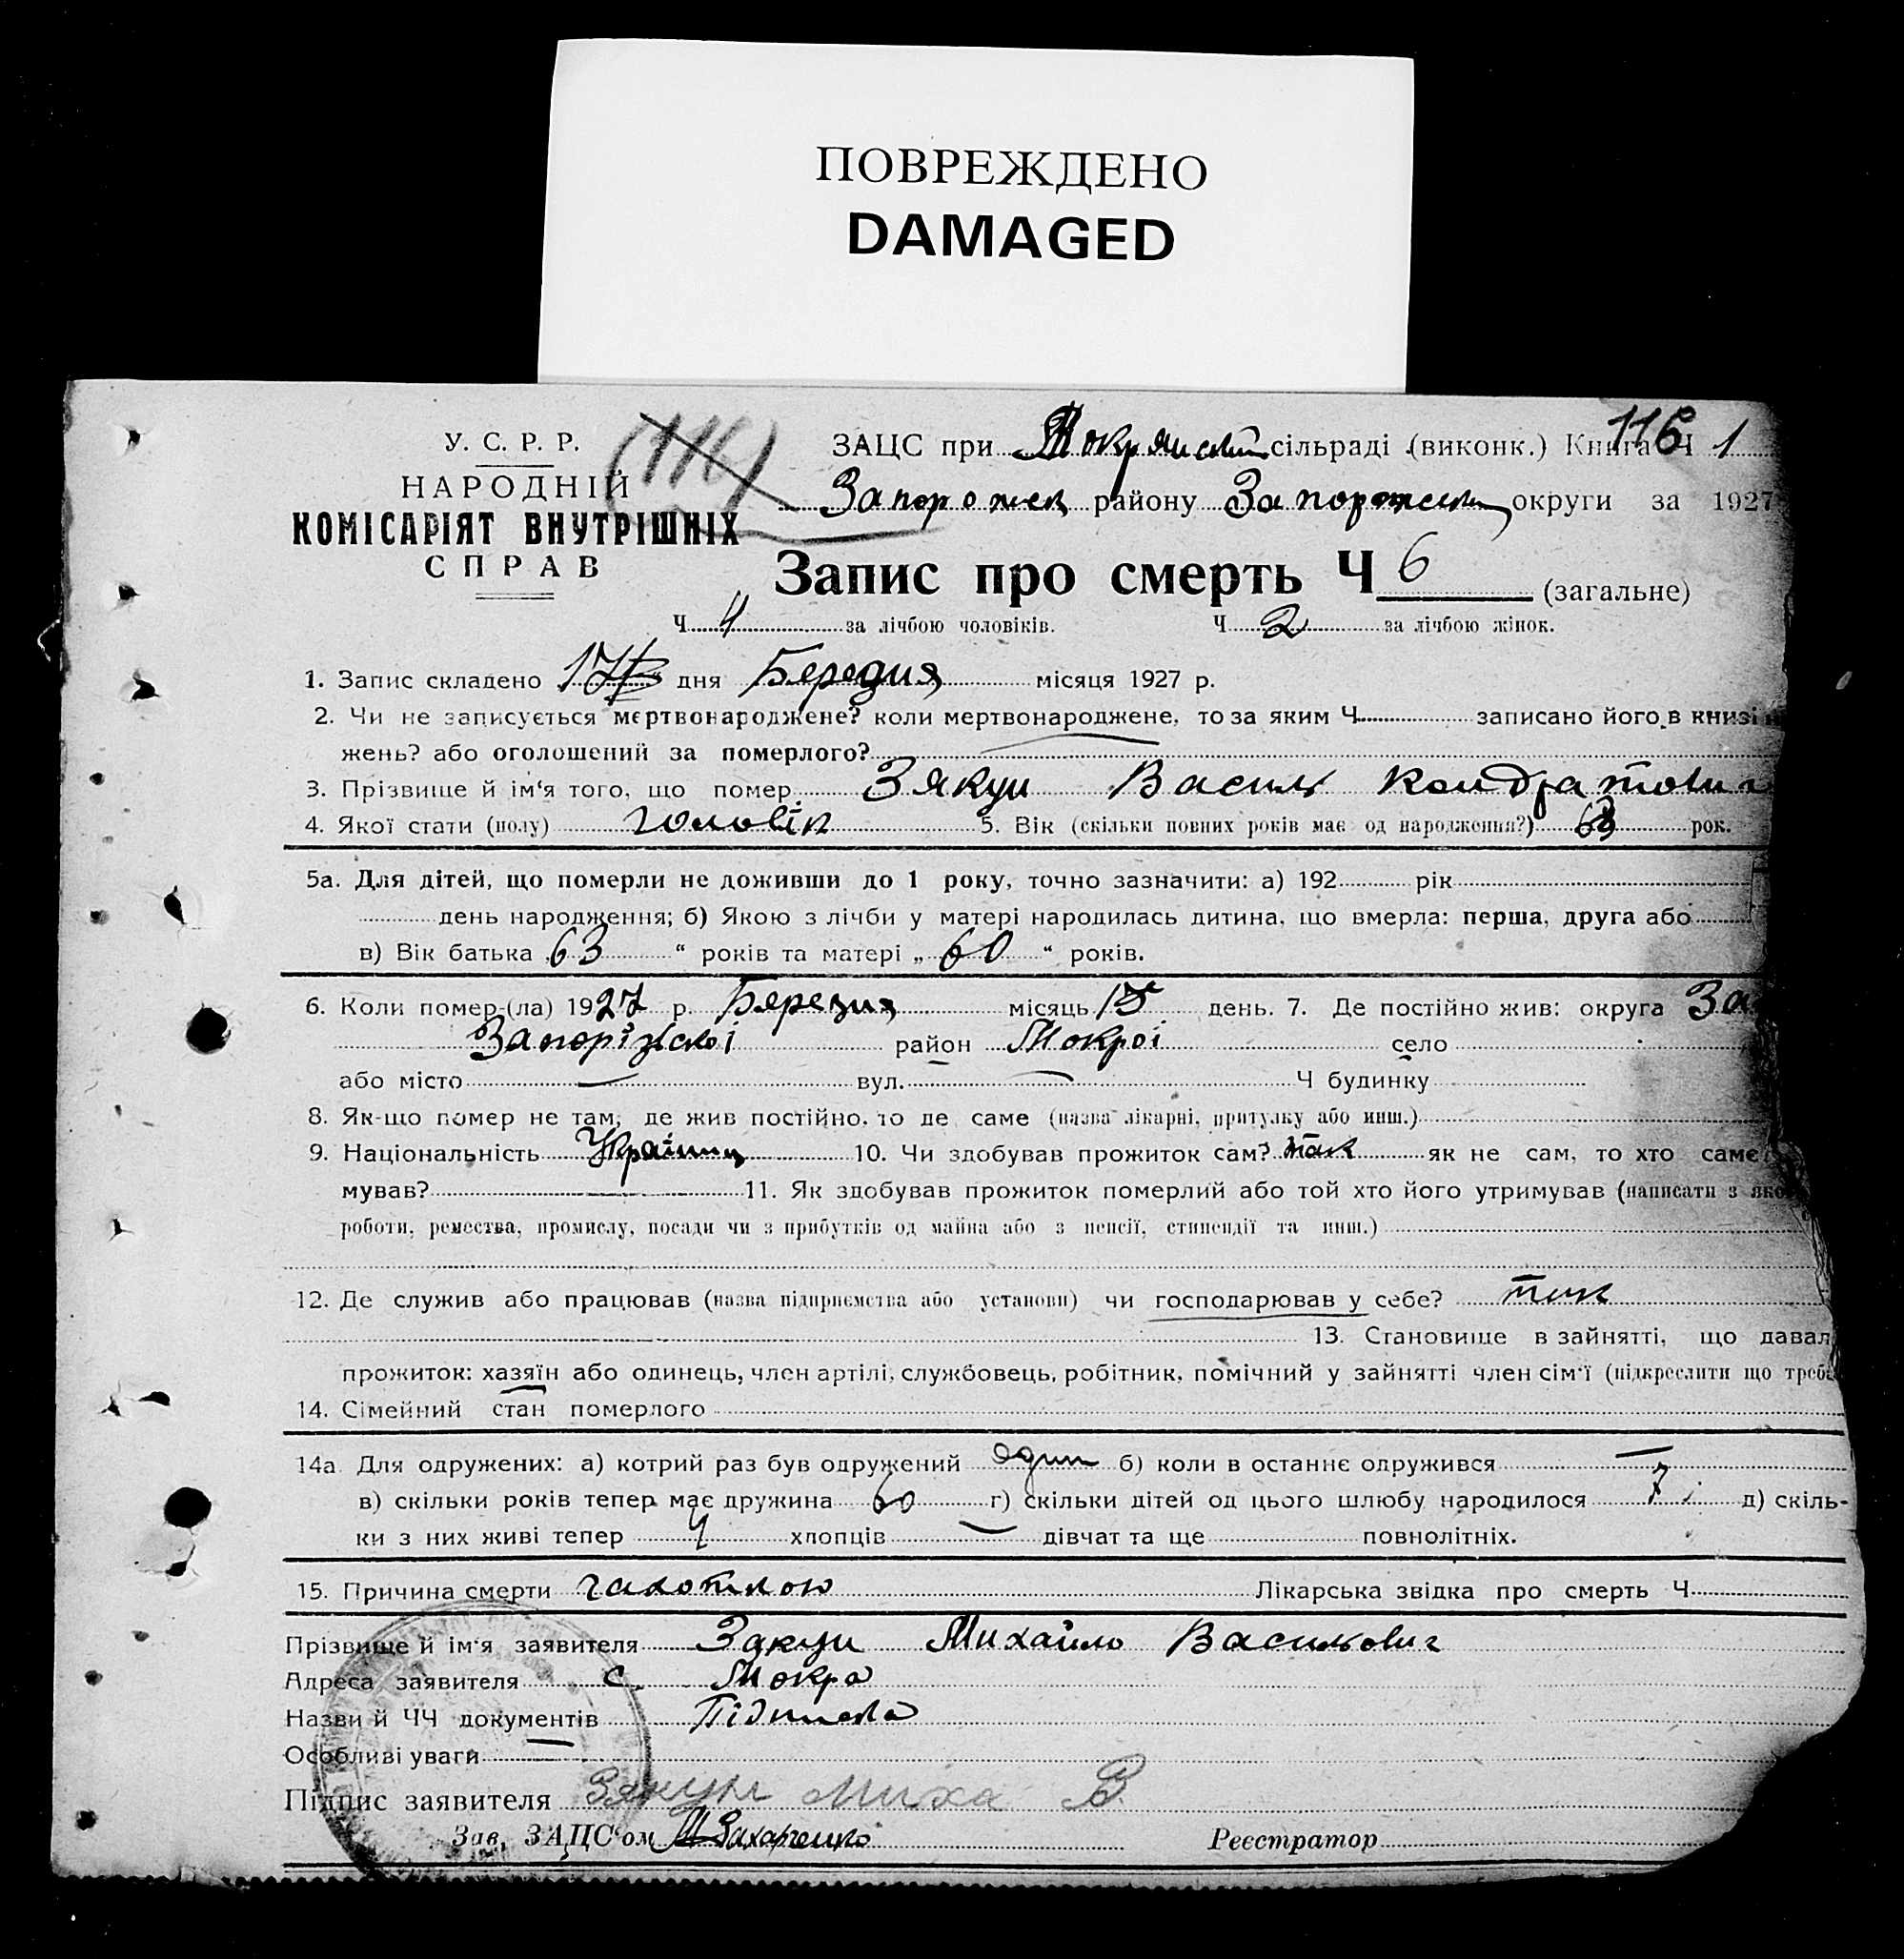 ПОВРЕЖДЕНО
DAMAGED
116
(116)
У. С. Р. Р.
НАРОДНІЙ
КОМІСАРІЯТ ВНУТРІШНІХ
СПРАВ
ЗАЦС при Мокрянській сільраді (виконк.) Книга Ч 1
Запорожск району Запорожськ округи за 1927
Запис про смерть Ч 6 (загальне)
Ч 4 за лічбою чоловіків. Ч 2 за лічбою жінок.
1. Запис складено 17 дня Березня місяця 1927 р.
2. Чи не записується мертвонароджене? коли мертвонароджене, то за яким Ч записано його в книзі н
жень? або оголошений за померлого?
3. Прізвище й ім'я того, що помер Зякун Василь Кондратович
4. Якої стати (полу) чоловік 5. Вік (скільки повних років має од народження?) 63 рок.
5а. Для дітей, що померли не доживши до 1 року, точно зазначити: а) 192 рік
день народження; б) Якою з лічби у матері народилась дитина, що вмерла: перша, друга або
в) Вік батька 63 “ років та матері „ 60 “ років.
6. Коли помер-(ла) 1927 р. Березня місяць 15 день. 7. Де постійно жив: округа За
Запорізскої район Мокрої село
або місто — вул. — Ч будинку
8. Як-що помер не там, де жив постійно, то де саме (назва лікарні, притулку або инш.)
9. Національність Українц 10. Чи здобував прожиток сам? так як не сам, то хто саме
мував? — 11. Як здобував прожиток померлий або той хто його утримував (написати з яко
роботи, ремества, промислу, посади чи з прибутків од майна або з пенсії, стипендії та инш.)
12. Де служив або працював (назва підприємства або установи) чи господарював у себе? так
13. Становище в зайнятті, що давал
прожиток: хазяїн або одинець, член артілі, службовець, робітник, помічний у зайнятті член сім'ї (підкреслити що треба
14. Сімейний стан померлого
14а Для одружених: а) котрий раз був одружений один б) коли в останнє одружився —
в) скільки років тепер має дружина 60 г) скільки дітей од цього шлюбу народилося 7 д) скіль-
ки з них живі тепер 4 хлопців — дівчат та ще повнолітніх.
15. Причина смерти чахоткою Лікарська звідка про смерть Ч
Прізвище й ім'я заявителя Зякун Михайло Василович
Адреса заявителя с. Мокра
Назви й ЧЧ документів
Особливі уваги —
Підпис заявителя Зякун Миха В
Зав. ЗАЦС'ом Захаренко Реєстратор